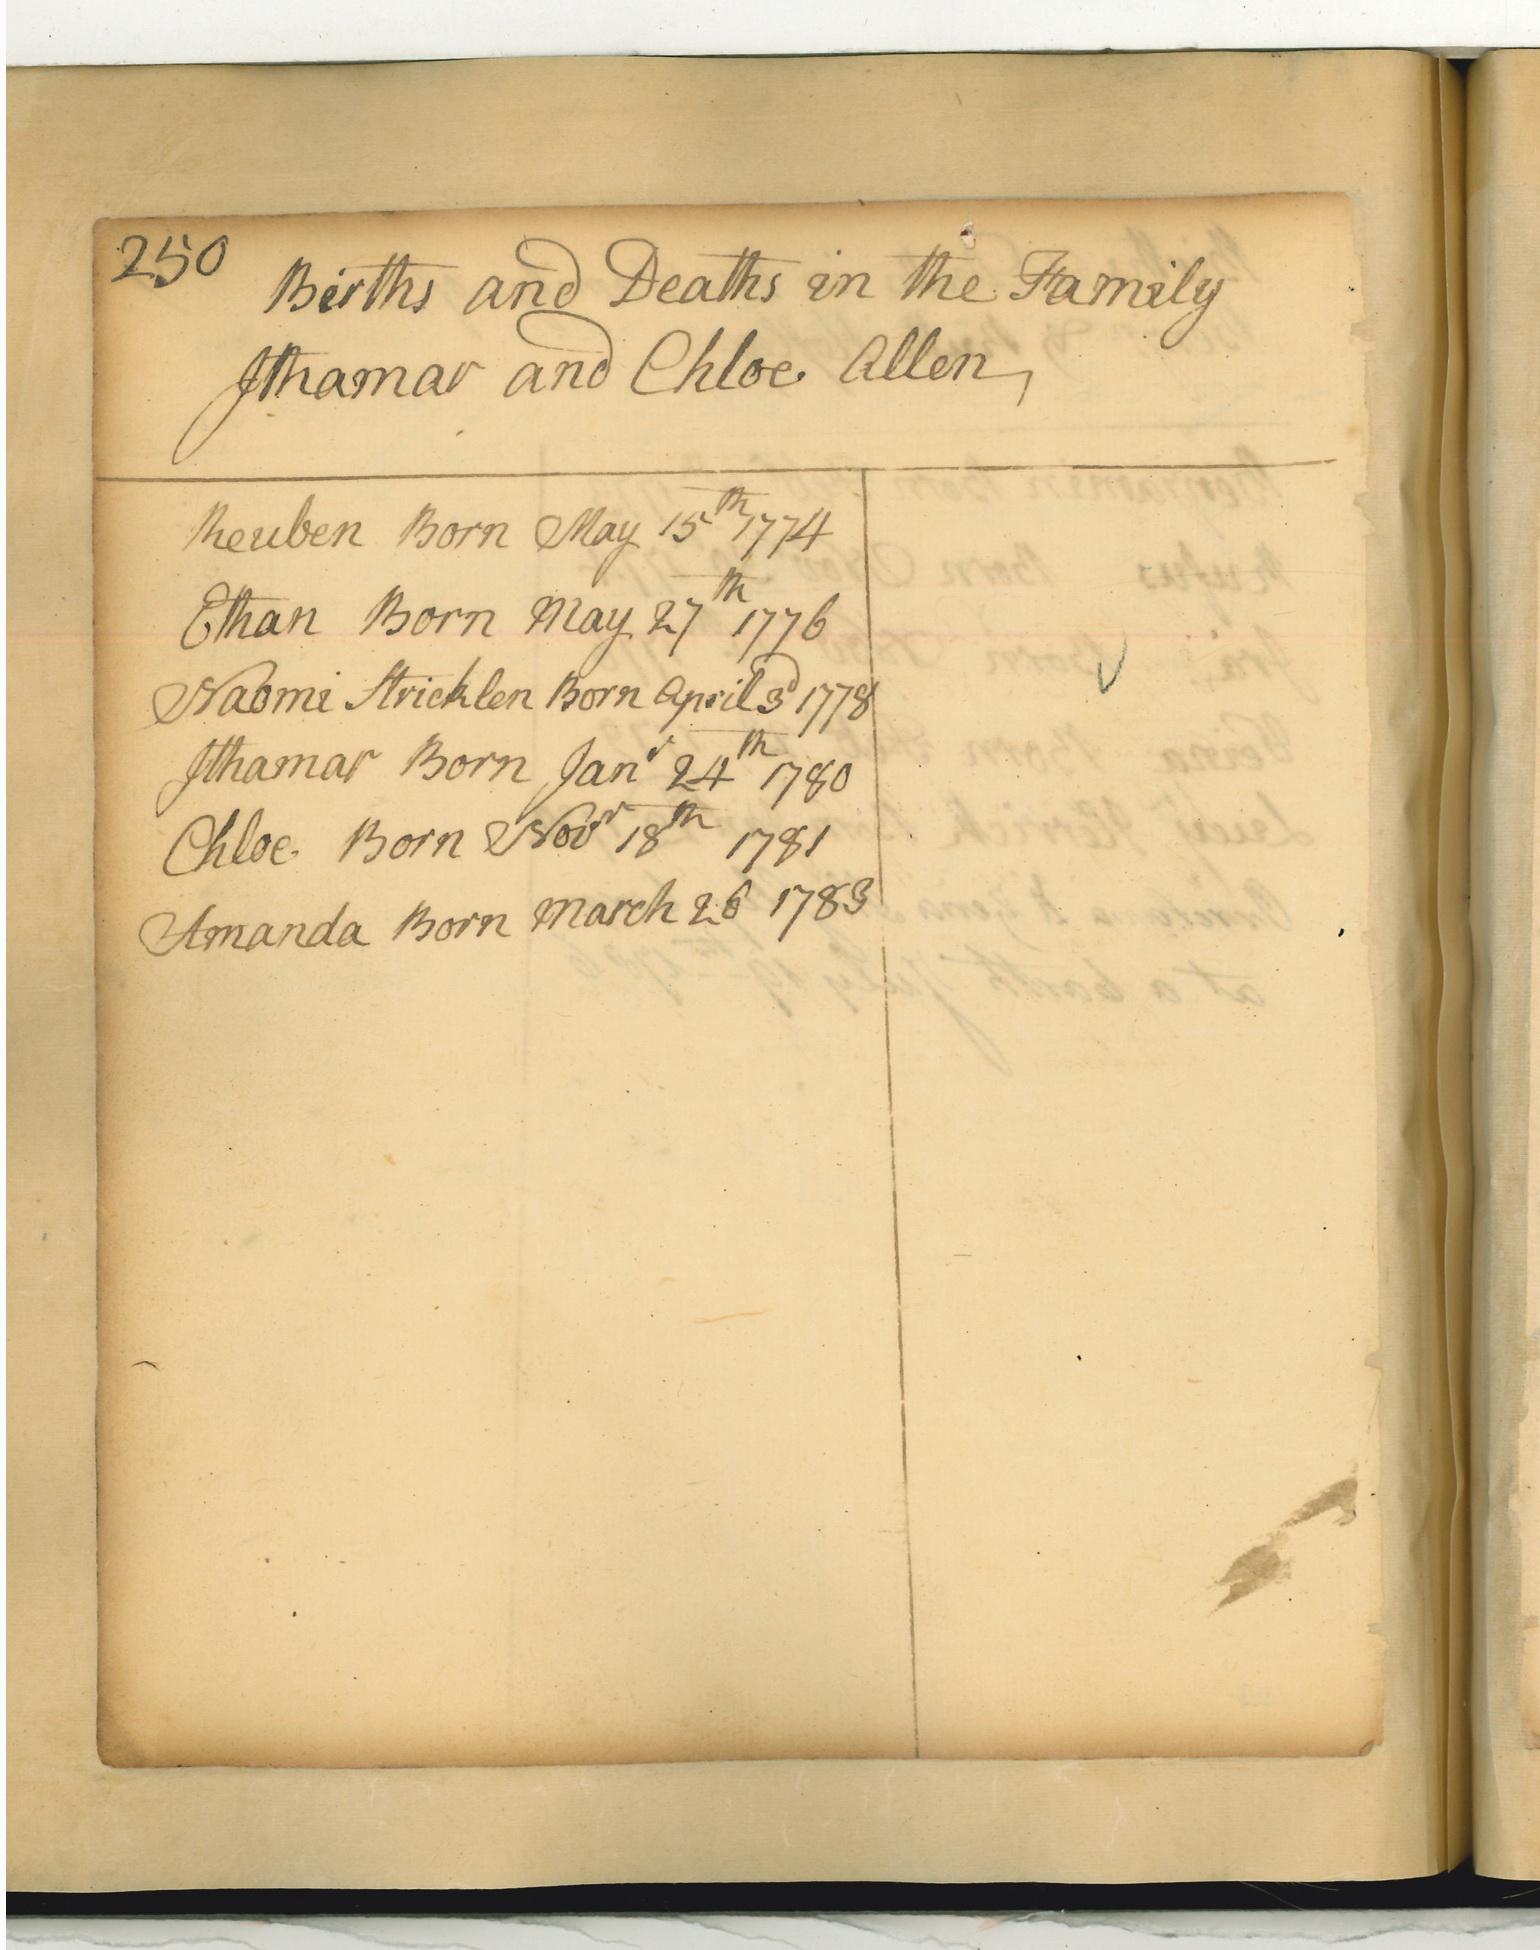 250
Births and Deaths in the Family
Ithamar and Chloe Allen,
Reuben Born May 15th 1774
Ethan Born May 27th 1776
Naomi Stricklen Born April 3d 1778
Ithamar Born Janr 24th 1780
Chloe Born Novr 18th 1781
Amanda Born March 26 1783